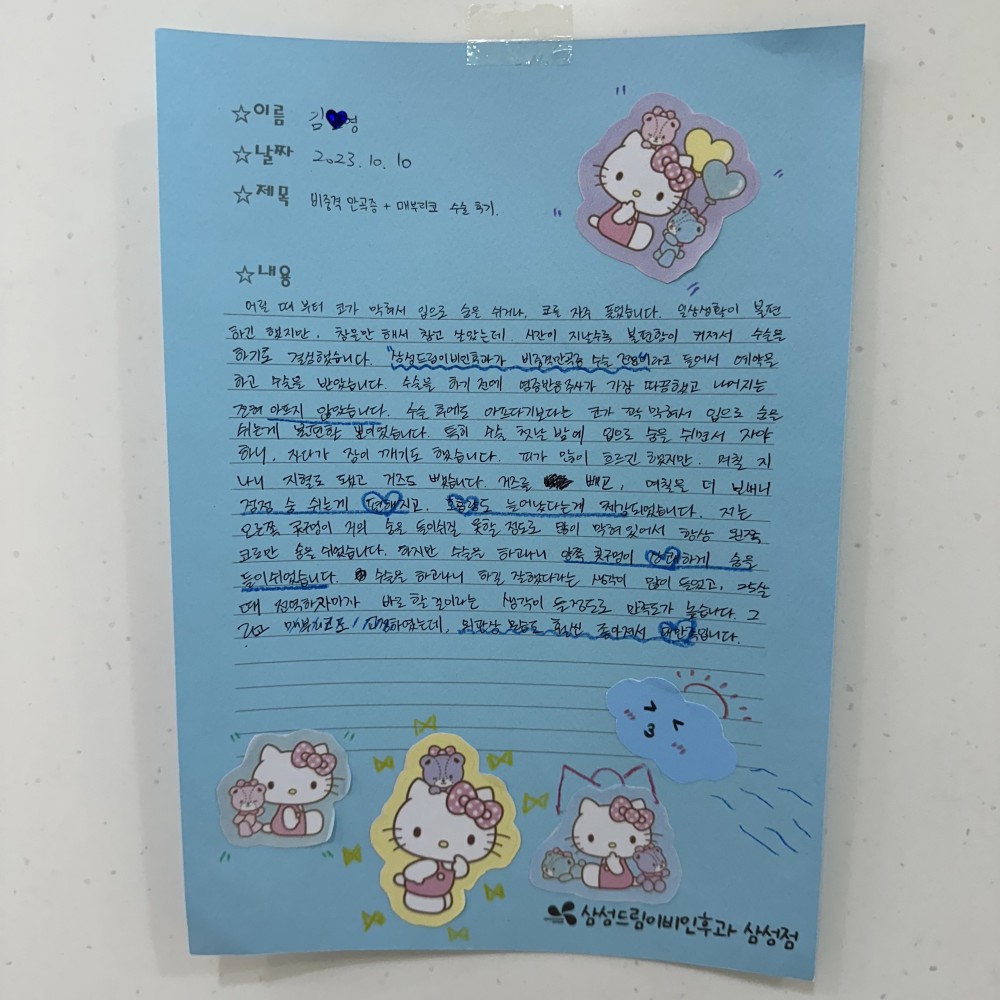 ☆이름 김♥영
☆날짜 2023. 10. 10
☆제목 비중격 만곡증 + 매부리코 수술 후기.
☆내용
어릴 때 부터 코가 막혀서 입으로 숨을 쉬거나, 코를 자주 풀었습니다. 일상생활이 불편
하긴 했지만, 참을만 해서 참고 살았는데, 시간이 지날수록 불편함이 커져서 수술을
하기로 결심했습니다. "삼성드림이비인후과가 비중격만곡증 수술 전문"이라고 들어서 예약을
하고 수술을 받았습니다. 수술을 하기 전에 염증반응주사가 가장 따끔했고 나머지는
전혀 아프지 않았습니다. 수술 후에도 아프다기보다는 코가 꽉 막혀서 입으로 숨을
쉬는게 불편한 뿐이었습니다. 특히 수술 첫날 밤에 입으로 숨을 쉬면서 자야
하니, 자다가 잠이 깨기도 했습니다. 피가 많이 흐르긴 했지만, 며칠 지
나니 지혈도 됐고 거즈도 뺐습니다. 거즈를 빼고, 며칠을 더 보내니
점점 숨 쉬는게 편해지고, 호흡량도 늘어났다는게 체감되었습니다. 저는
오른쪽 콧구멍이 거의 숨을 들이쉬질 못할 정도로 많이 막혀있어서 항상 왼쪽
코로만 숨을 쉬었습니다. 하지만 수술을 하고나니 양쪽 콧구멍이 하게 숨을
들이쉬었습니다. 수술을 하고나니 하길 잘했다라는 생각이 많이 들었고, 25살
때 바로 할 걸이라는 생각이 들정도로 만족도가 높습니다. 그
리고 매부리코도 하였는데, 외관상 모습도 훨씬 좋아져서 대만족입니다.
삼성드림이비인후과 삼성점